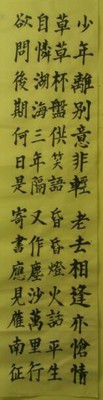 少年離別意非輕老去相逢亦愴情
草草杯盤供笑語昏昏燈火話平生
自憐湖海三年隔又作塵沙萬里行
欲問後期何日是寄書應見雁南征